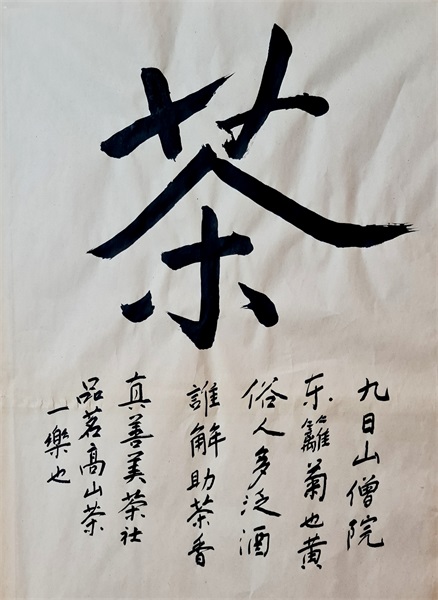 茶
九日山僧院
东籬菊也黄
俗人多泛酒
誰解助茶香
真善美茶社
品茗高山茶
一樂也